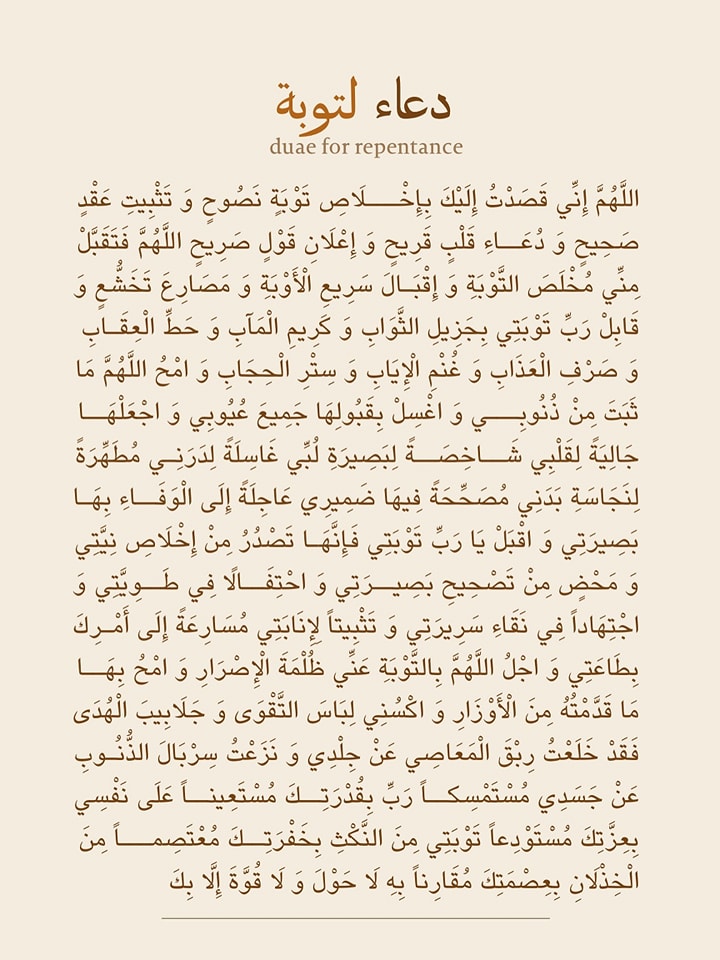 دعاء لتوبة
duae for repentance
اللَّهُمَّ إِنِّي قَصَدْتُ إِلَيْكَ بِإِخْـــــلَاصِ تَوْبَةٍ نَصُوحٍ وَ تَثْبِيتِ عَقْدٍ
صَحِيحٍ وَ دُعَـــاءِ قَلْبٍ قَرِيحٍ وَ إِعْلَانِ قَوْلٍ صَرِيحٍ اللَّهُمَّ فَتَقَبَّلْ
مِنِّي مُخْلَصَ التَّوْبَةِ وَ إِقْبَـالَ سَرِيعِ الْأَوْبَةِ وَ مَصَارِعَ تَخَشُّعٍ وَ
قَابِلْ رَبِّ تَوْبَتِي بِجَزِيلِ الثَّوَابِ وَ كَرِيمِ الْمَآبِ وَ حَطِّ الْعِقَـابِ
وَ صَرْفِ الْعَذَابِ وَ غُنْمِ الْإِيَابِ وَ سِتْرِ الْحِجَابِ وَ امْحُ اللَّهُمَّ مَا
ثَبَتَ مِنْ ذُنُوبِـــــي وَ اغْسِلْ بِقَبُولِهَا جَمِيعَ عُيُوبِي وَ اجْعَلْهَـــا
جَالِيَةً لِقَلْبِي شَـــاخِصَـــةً لِبَصِيرَةِ لُبِّي غَاسِلَةً لِدَرَنِـي مُطَهِّرَةً
لِنَجَاسَةِ بَدَنِي مُصَحِّحَةً فِيهَا ضَمِيرِي عَاجِلَةً إِلَى الْوَفَـــاءِ بِهَـا
بَصِيرَتِي وَ اقْبَلْ يَا رَبِّ تَوْبَتِي فَإِنَّهَـا تَصْدُرُ مِنْ إِخْلَاصِ نِيَّتِي
وَ مَحْضٍ مِنْ تَصْحِيحِ بَصِيـــرَتِي وَ احْتِفَـــالًا فِي طَـــوِيَّتِي وَ
اجْتِهَاداً فِي نَقَاءِ سَرِيرَتِي وَ تَثْبِيتاً لِإِنَابَتِي مُسَارِعَةً إِلَى أَمْـرِكَ
بِطَاعَتِي وَ اجْلُ اللَّهُمَّ بِالتَّوْبَةِ عَنِّي ظُلْمَةَ الْإِصْرَارِ وَ امْحُ بِهَـــا
مَا قَدَّمْتُهُ مِنَ الْأَوْزَارِ وَ اكْسُنِي لِبَاسَ التَّقْوَى وَ جَلَابِيبَ الْهُدَى
فَقَدْ خَلَعْتُ رِبْقَ الْمَعَاصِي عَنْ جِلْدِي وَ نَزَعْتُ سِرْبَالَ الذُّنُـوبِ
عَنْ جَسَدِي مُسْتَمْسِكـــاً رَبِّ بِقُدْرَتِـــكَ مُسْتَعِينـــاً عَلَى نَفْسِي
بِعِزَّتِكَ مُسْتَوْدِعاً تَوْبَتِي مِنَ النَّكْثِ بِخَفْرَتِـــكَ مُعْتَصِمـــــاً مِنَ
الْخِذْلَانِ بِعِصْمَتِكَ مُقَارِناً بِهِ لَا حَوْلَ وَ لَا قُوَّةَ إِلَّا بِكَ